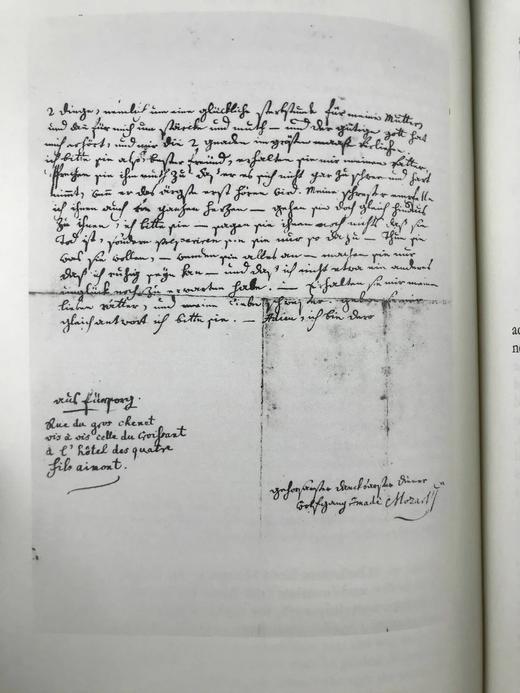 2 dinge, nemlich um eine glückliche sterbstunde für meine Mutter,
und dan für mich um stärcke und muth — und der gütige gott hat
mich erhört, und mir die 2 gnaden im grösten maaße verliehen.
ich bitte sie also, bester freünd, erhalten sie mir meinen vatter,
sprechen sie ihm muth zu daß er es sich nicht gar zu schwer und hart
nimmt, wenn er das ärgste erst hören wird. Meine schwester empfehle
ich ihnen auch von ganzen herzen — gehen sie doch gleich hinaus
zu ihnen, ich bitte sie — sagen sie ihnen noch nicht daß sie
Tod ist, sondern prepariren sie sie nur so dazu — Thun sie
was sie wollen, — wenden sie alles an — machen sie nur
daß ich ruhig seyn kan — und daß ich nicht etwa ein anderes
unglück noch zu erwarten habe. — Erhalten sie mir meinen
lieben vatter, und meine liebe schwester. geben sie mir
gleich antwort ich bitte sie. — Adieu, ich bin dero
aus fürsorg.
Rue du gros chenet
vis à vis celle du Croissant
à l'hôtel des quatre
fils aimont.
gehorsamster danckbarster diener
Wolfgang Amadè Mozart